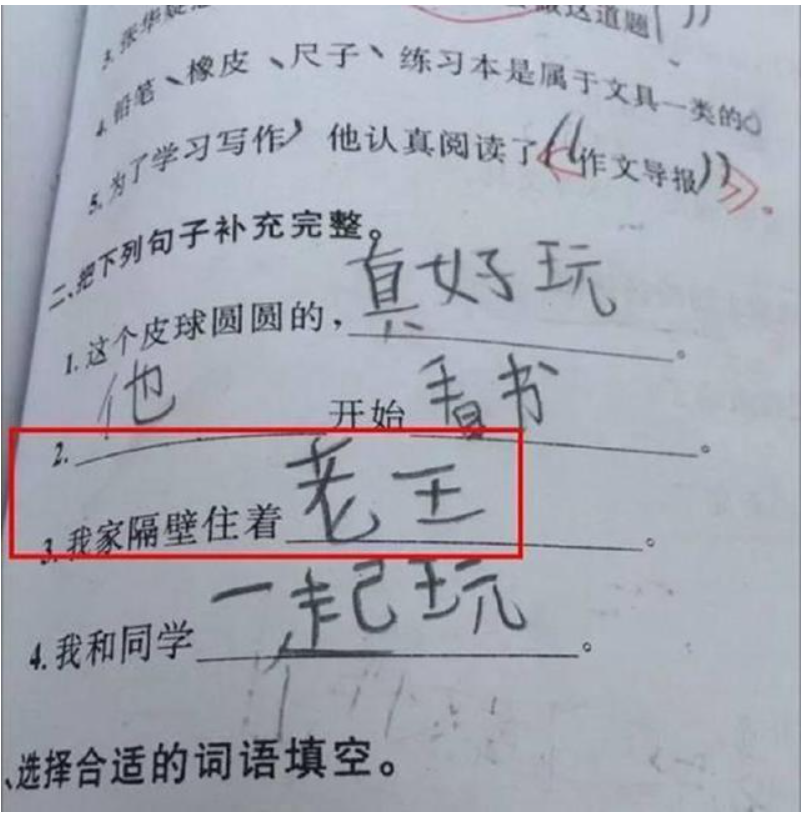 3.张华
做这道题
4.铅笔、橡皮、尺子、练习本是属于文具一类的。
5.为了学习写作，他认真阅读了《作文导报》。
二、把下列句子补充完整。
1.这个皮球圆圆的，真好玩。
2.他开始看书。
3.我家隔壁住着老王。
4.我和同学一起玩。
、选择合适的词语填空。